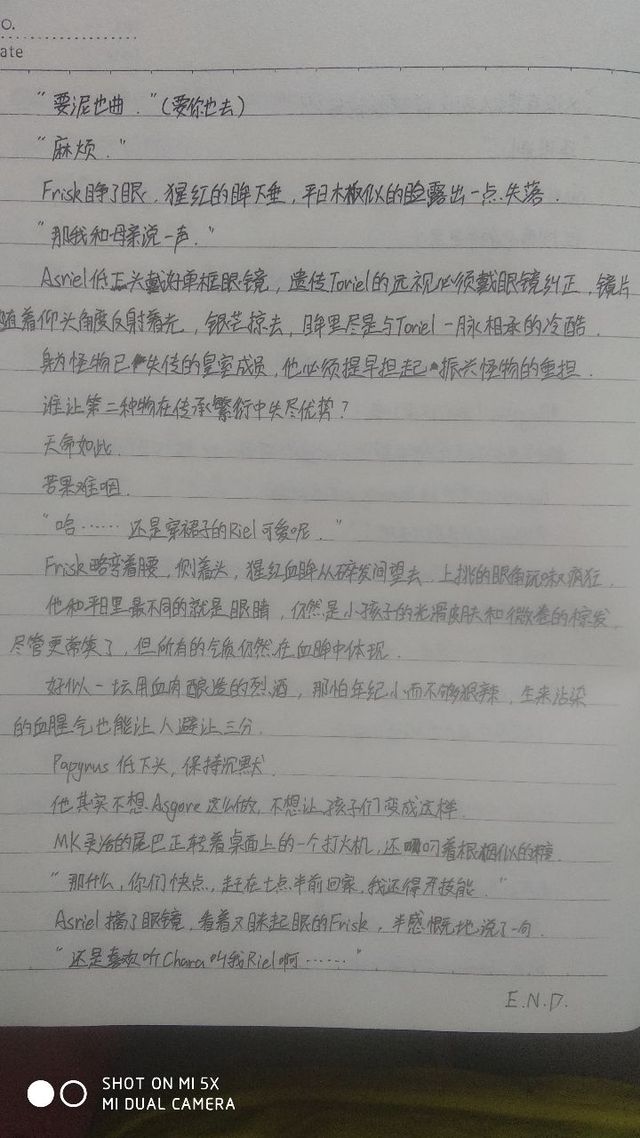 O.
ate
“要泥也曲．”(要你也去)
“麻烦．”
Frisk睁了眼，猩红的眸下垂，平日木板似的脸露出一点失落．
“那我和母亲说一声．”
Asriel低下头戴好单框眼镜，遗传Toriel的远视必须戴眼镜纠正，镜片
随着仰头角度反射着光，银芒掠去，眸里尽是与Toriel一脉相承的冷酷．
身为怪物已失传的皇室成员，他必须提早担起振兴怪物的重担．
谁让第二种物在传承繁衍中失尽优势？
天命如此．
苦果难咽．
“哈……还是穿裙子的Riel可爱呢．”
Frisk略弯着腰，侧着头，猩红血眸从碎发间望去．上挑的眼角玩味疯狂．
他和平日里最不同的就是眼睛，仍然是小孩子的光滑皮肤和微卷的棕发．
尽管更常笑了，但所有的气质仍然在血眸中体现．
好似一坛用血肉酿造的烈酒，那怕年纪小而不够狠辣，生来沾染
的血腥气也能让人避让三分．
Papyrus低下头，保持沉默．
他其实不想Asgore这么做，不想让孩子们变成这样．
MK灵活的尾巴正转着桌面上的一个打火机，还叼着根烟似的糖．
“那什么，你们快点，赶在七点半前回家，我还得开技能．”
Asriel摘了眼镜，看着又眯起眼的Frisk，半感慨地说了一句．
“还是喜欢听Chara叫我Riel啊……”
E.N.D.
SHOT ON MI 5X
MI DUAL CAMERA